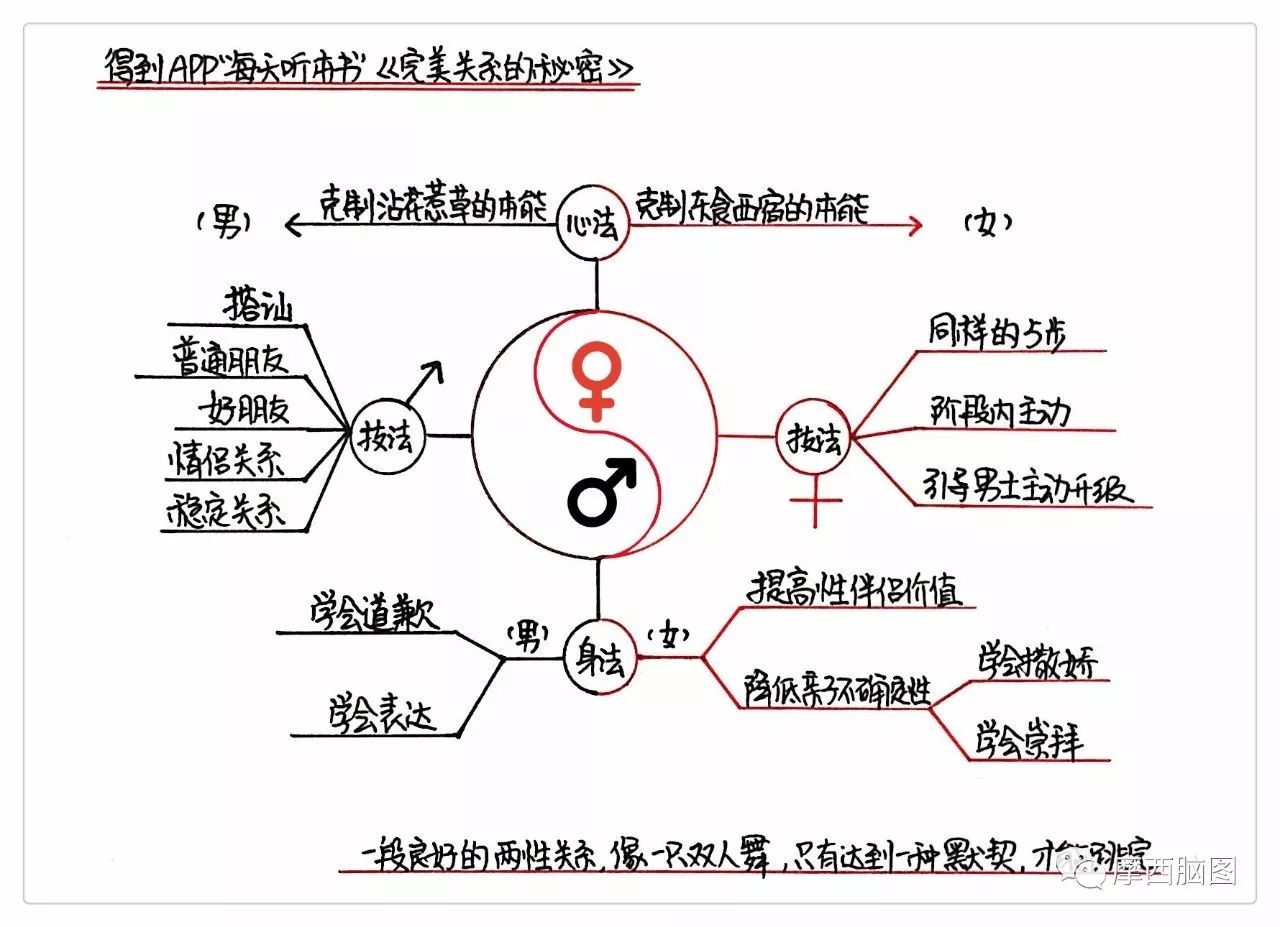 得到APP“每天听本书”《完美关系的秘密》
(男)
克制沾花惹草的本能
心法
克制东食西宿的本能
(女)
搭讪
普通朋友
好朋友
情侣关系
稳定关系
技法
技法
同样的5步
阶段内主动
引导男士主动升级
学会道歉
学会表达
(男)
身法
(女)
提高性伴侣价值
降低亲子不确定性
学会撒娇
学会崇拜
一段良好的两性关系,像一只双人舞,只有达到一种默契,才能
摩西脑图